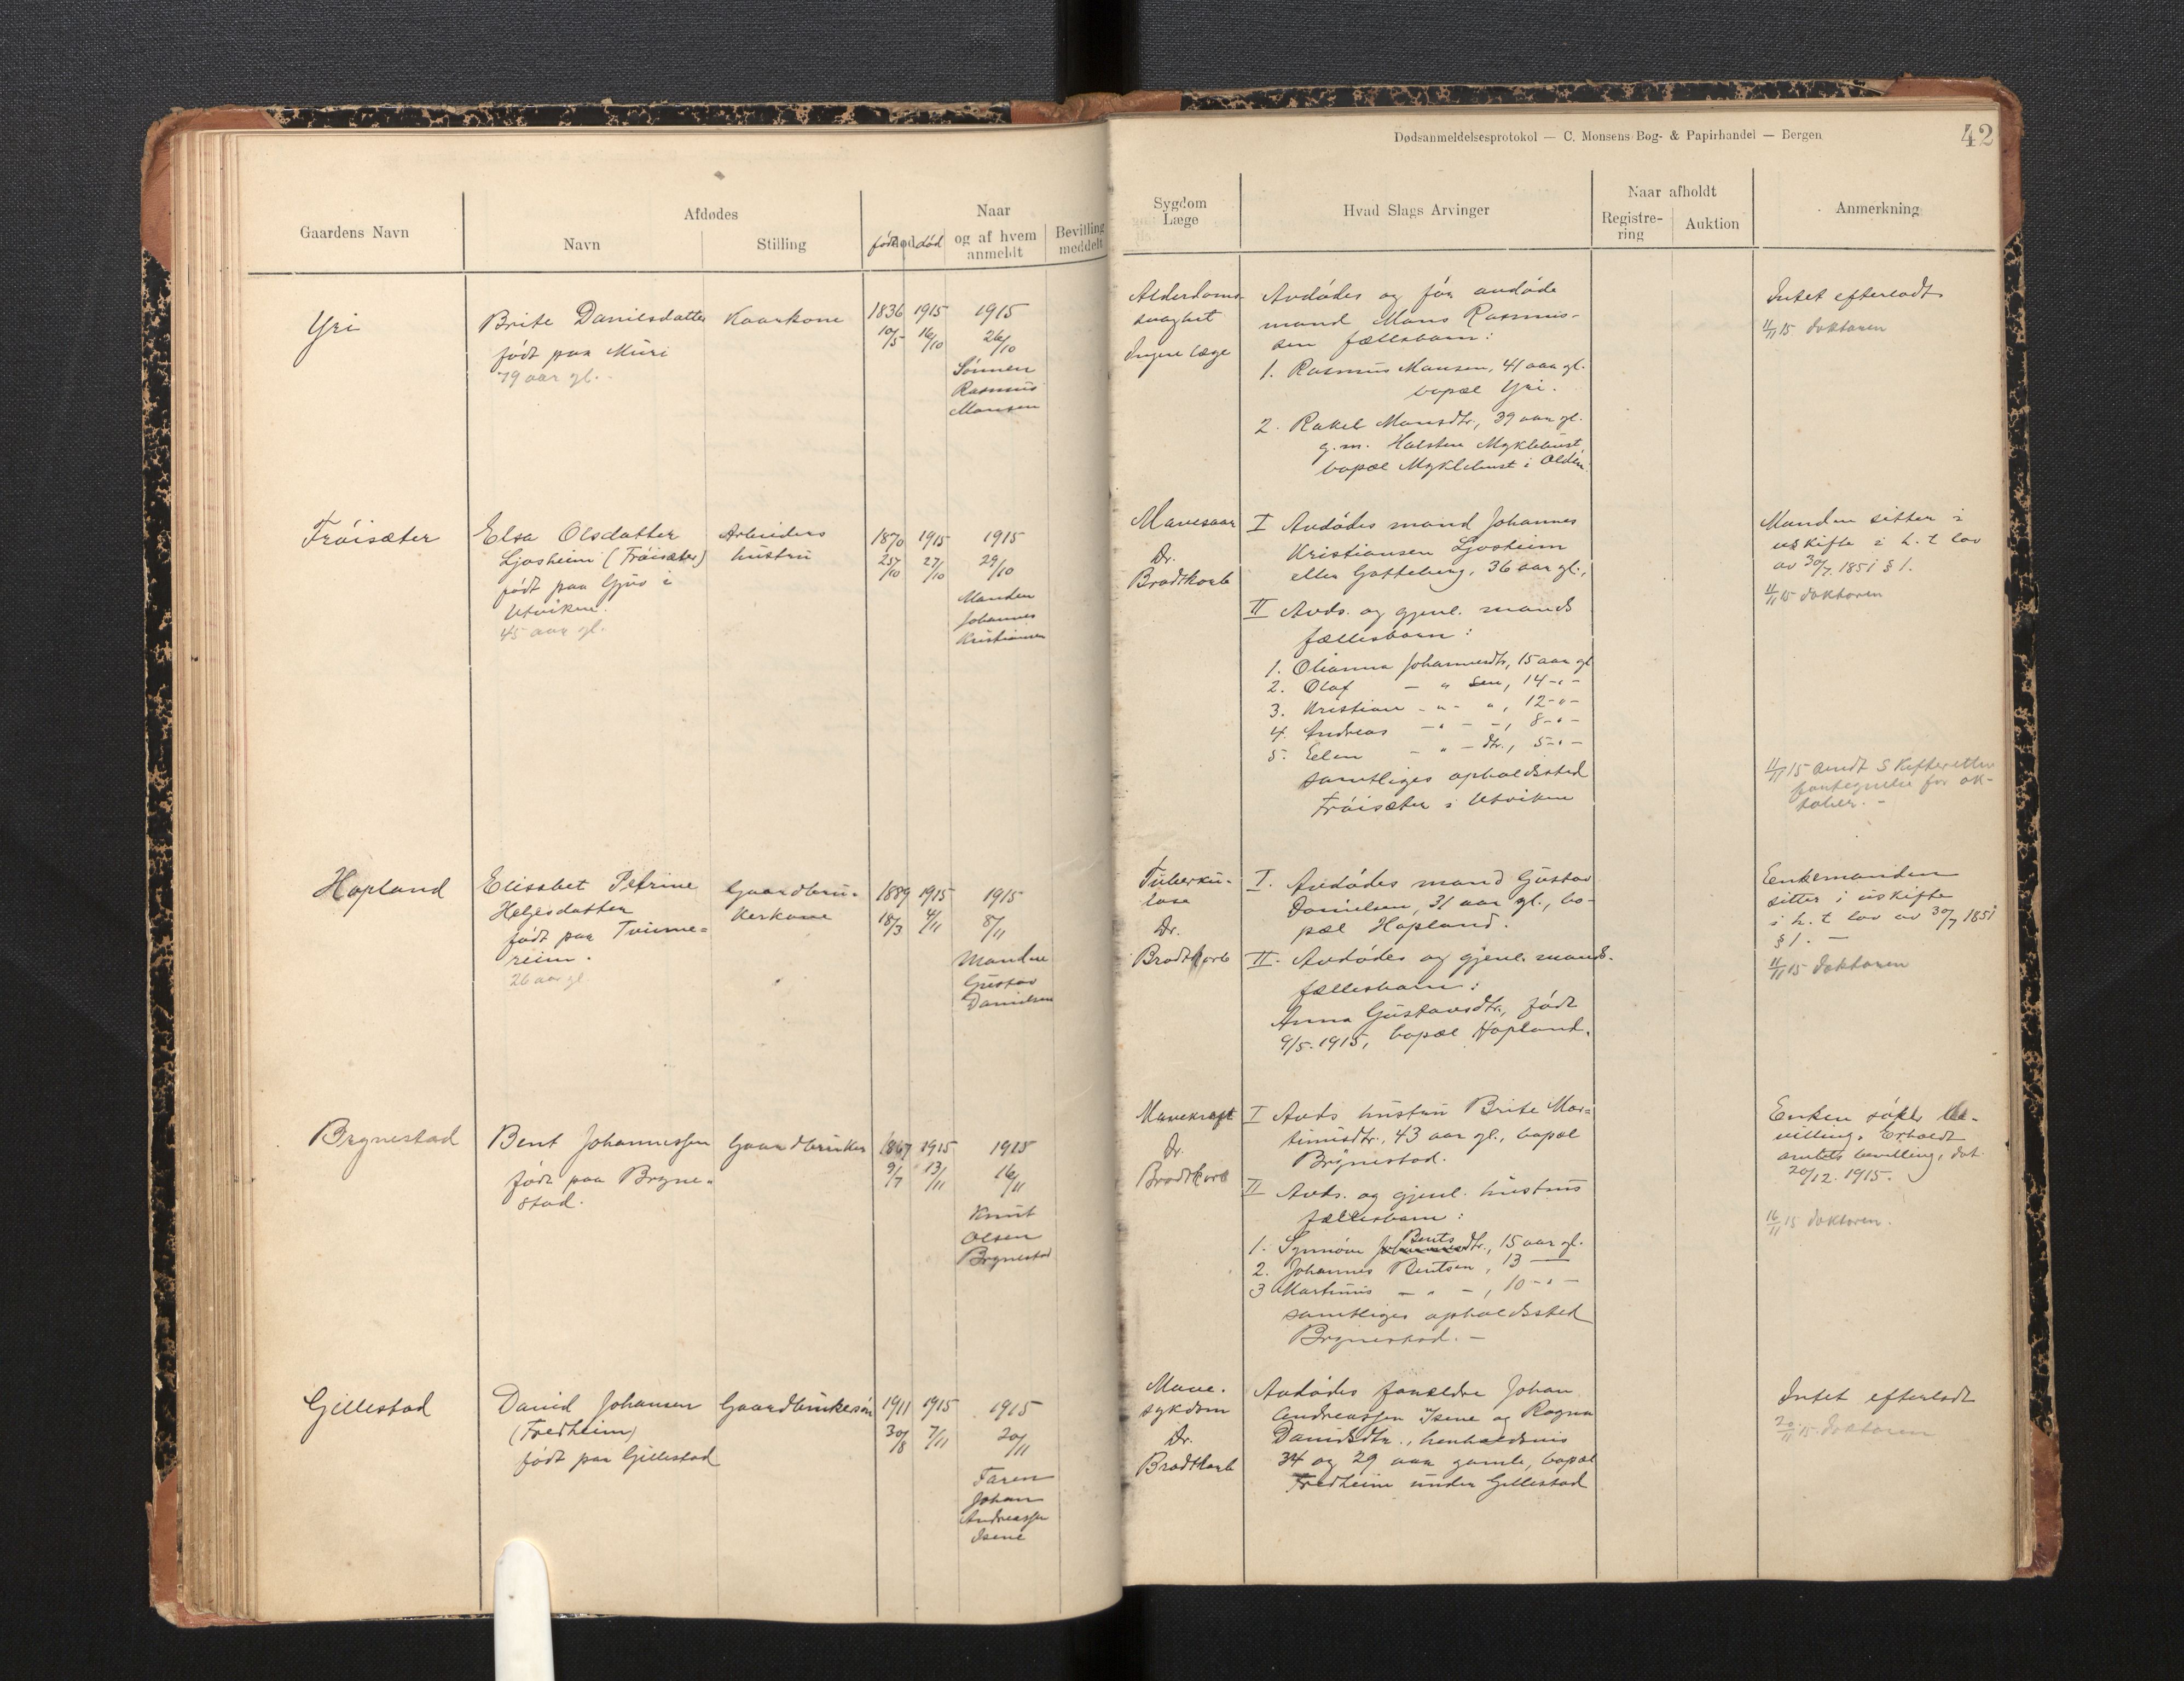 Dødsanmeldelsesprotokol — C. Monsens Bog- & Papirhandel — Bergen
42
Gaardens Navn
Afdødes
Navn
Stilling
født
død
Naar
og af hvem
anmeldt
Bevilling
meddelt
Sygdom
Læge
Hvad Slags Arvinger
Naar afholdt
Registre-
ring
Auktion
Anmerkning
Yri
Brite Danielsdatter
født paa Muri
79 aar gl.
Kaarkone
1836
10/5
1915
16/10
1915
26/10
Sønnen
Rasmus
Mansen
Alderdoms-
svaghet
Ingen læge
Avdødes og før avdøde
mand Mons Rasmus-
sen fællsbarn:
1. Rasmus Mansen, 41 aar gl.
bopæl Yri.
2. Rakel Mansdtr., 39 aar gl.
g.m. Halsten Myklebust,
bopæl Myklebust i Olden.
Intet efterladt
11/11 15 doktoren
Frøisæter
Elsa Olsdatter
Ljosheim (Frøisæter)
født paa Gjus i
Utviken.
45 aar gl.
Arbeiders
hustru
1870
25/10
1915
27/10
1915
29/10
Manden
Johannes
Kristiansen
Mavesaar
Dr.
Bradtkorb
I Avdødes mand Johannes
Kristiansen Ljosheim
eller 36 aar gl.,
II Avds. og gjenl. mands
fællesbarn:
1. Olianna Johannesdtr, 15 aar gl
2. Olaf — " sen, 14 - " -
3. Kristian - " - ", 12 - " -
4. Andreas - " - -, 8 - " -
5. Elen - " - dtr., 5 - " -
samtliges opholdssted
Frøisæter i Utviken
Manden sitter i
uskifte i h. t lov
av 30/7 1851 § 1.
11/11 15 doktoren
11/11 15 sendt Skifteretten
fortegnelse for ok-
tober. -
Hopland
Elisabet Petrine
Helgesdatter
født paa Tvinne=
reim.
26 aar gl
Gaardbru-
kerkone
1889
18/3
1915
4/11
1915
8/11
Manden
Gustav
Danielsen
Tuberku-
lose
Dr.
Bradtkorb
I. Avdødes mand Gustav
Danielsen, 31 aar gl., bo-
pæl Hopland.
II. Avdødes og gjenl. mands.
fællesbarn:
Anna Gustavsdtr, født
9/5. 1915, bopæl Hopland.
Enkemanden
sitter i uskifte
i h. t lov av 30/7 1851
§ 1. —
11/11 15 doktoren
Brynestad
Bent Johannessen
født paa Bryne=
stad.
Gaardbruker
1867
9/7
1915
13/11
1915
16/11
Knut
Olsen
Brynestad
Mavekræft
Dr.
Bradtkorb
I Avds hustru Brite Mar=
tinusdtr., 43 aar gl., bopæl
Brynestad.
II Avds. og gjenl. hustrus
fællesbarn:
1. Synnøve Bentsdtr., 15 aar gl.
2. Johannes Bentsen, 13 —
3 Martinus — " —, 10 - " -
samtliges opholdssted
Brynestad. —
Enken søkt be-
villing. Erholdt
amtets bevilling, dat.
20/12. 1915.
16/11 15 doktoren.
Gillestad
David Johansen
(Fredheim)
født paa Gillestad
Gaardbrukersøn
1911
30/8
1915
7/11
1915
20/11
Faren
Johan
Andreassen
Isene
Mave-
sykdom
Dr.
Bradtkorb
Avdødes forældre Johan
Andreassen Isene og Ragna
Davidsdtr., henholdsvis
34 og 29 aar gamle, bopæl
Fredheim under Gillestad
Intet efterladt
20/11 15. doktoren